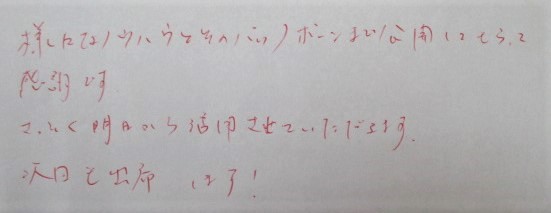 様々なノウハウとそのバックボーンまで公開してもらって
感謝です
さっそく明日から活用させていただきます.
次回も出席します!